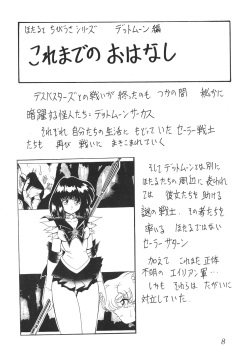 ほたるとちびうさシリーズ　デットムーン編
これまでの おはなし
デスバスターズとの戦いが終ったのも つかの間 秘かに
暗躍する怪人たち・デットムーンサーカス
それぞれ自分たちの生活に もどっていた セーラー戦士
たちも 再び 戦いに まきこまれていく
そしてデットムーンとは別に
ほたるたちの周辺に 現われ
ては 彼女たちを 助ける
謎の戦士、その者たちを
率いる ほたるではない
セーラーサターン
加えて これまた 正体
不明の エイリアン軍…
しかも それらは たがいに
対立していた
8